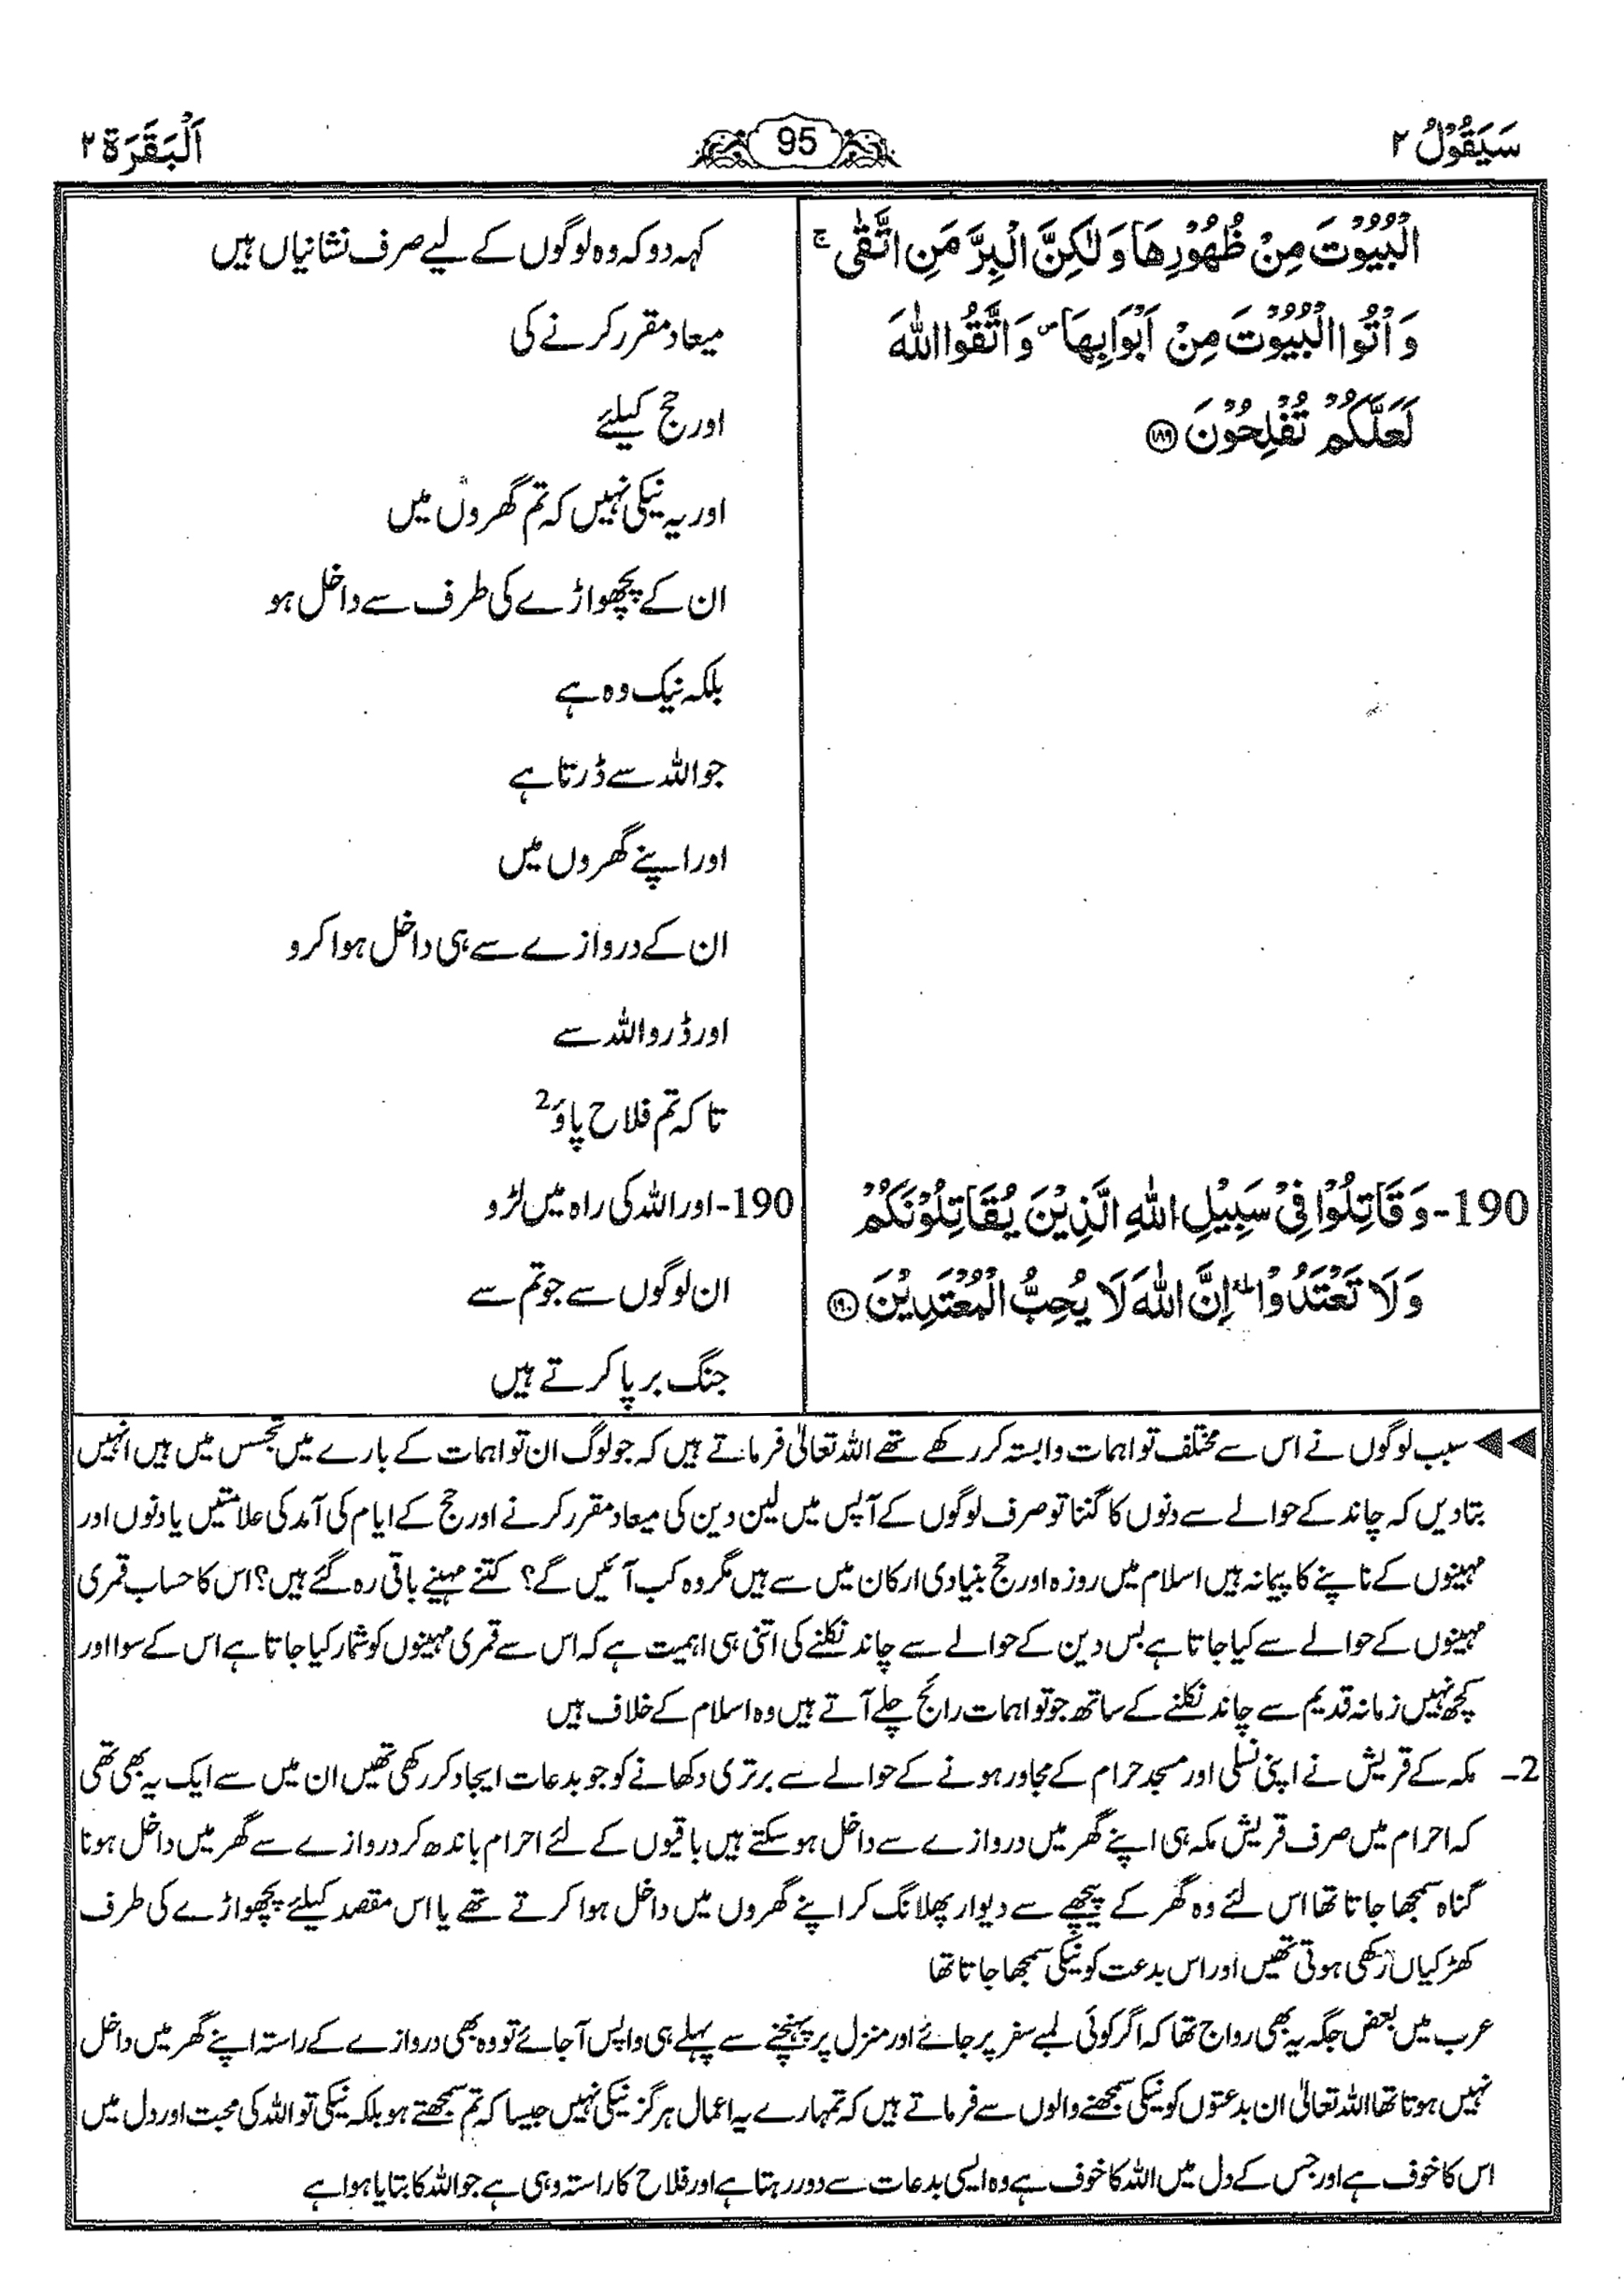 سَيَقُوْلُ ٢
95
اَلْبَقَرَة ٢
الْبُيُوْتَ مِنْ ظُهُوْرِهَا وَلٰكِنَّ الْبِرَّ مَنِ اتَّقٰى ۚ
وَاْتُوا الْبُيُوْتَ مِنْ اَبْوَابِهَا ۪ وَاتَّقُوا اللّٰهَ
لَعَلَّكُمْ تُفْلِحُوْنَ ﴿١٨٩﴾
کہہ دو کہ وہ لوگوں کے لیے صرف نشانیاں ہیں
میعاد مقرر کرنے کی
اور حج کیلئے
اور یہ نیکی نہیں کہ تم گھروں میں
ان کے پچھواڑے کی طرف سے داخل ہو
بلکہ نیک وہ ہے
جو اللہ سے ڈرتا ہے
اور اپنے گھروں میں
ان کے دروازے سے ہی داخل ہوا کرو
اور ڈرو اللہ سے
تاکہ تم فلاح پاؤ2
190-وَقَاتِلُوْا فِيْ سَبِيْلِ اللّٰهِ الَّذِيْنَ يُقَاتِلُوْنَكُمْ
وَلَا تَعْتَدُوْا ۭ اِنَّ اللّٰهَ لَا يُحِبُّ الْمُعْتَدِيْنَ ﴿١٩٠﴾
190-اور اللہ کی راہ میں لڑو
ان لوگوں سے جو تم سے
جنگ برپا کرتے ہیں
◄◄ سبب لوگوں نے اس سے مختلف تواہمات وابستہ کر رکھے تھے اللہ تعالیٰ فرماتے ہیں کہ جو لوگ ان تواہمات کے بارے میں تجسس میں ہیں انہیں
بتادیں کہ چاند کے حوالے سے دنوں کا گننا تو صرف لوگوں کے آپس میں لین دین کی میعاد مقرر کرنے اور حج کے ایام کی آمد کی علامتیں یا دنوں اور
مہینوں کے ناپنے کا پیمانہ ہیں اسلام میں روزہ اور حج بنیادی ارکان میں سے ہیں مگر وہ کب آئیں گے؟ کتنے مہینے باقی رہ گئے ہیں؟ اس کا حساب قمری
مہینوں کے حوالے سے کیا جاتا ہے بس دین کے حوالے سے چاند نکلنے کی اتنی ہی اہمیت ہے کہ اس سے قمری مہینوں کو شمار کیا جاتا ہے اس کے سوا اور
کچھ نہیں زمانہ قدیم سے چاند نکلنے کے ساتھ جو تواہمات رائج چلے آتے ہیں وہ اسلام کے خلاف ہیں
2- مکہ کے قریش نے اپنی نسلی اور مسجد حرام کے مجاور ہونے کے حوالے سے برتری دکھانے کو جو بدعات ایجاد کر رکھی تھیں ان میں سے ایک یہ بھی تھی
کہ احرام میں صرف قریش مکہ ہی اپنے گھر میں دروازے سے داخل ہو سکتے ہیں باقیوں کے لئے احرام باندھ کر دروازے سے گھر میں داخل ہونا
گناہ سمجھا جاتا تھا اس لئے وہ گھر کے پیچھے سے دیوار پھلانگ کر اپنے گھروں میں داخل ہوا کرتے تھے یا اس مقصد کیلئے پچھواڑے کی طرف
کھڑکیاں رکھی ہوتی تھیں اور اس بدعت کو نیکی سمجھا جاتا تھا
عرب میں بعض جگہ یہ بھی رواج تھا کہ اگر کوئی لمبے سفر پر جائے اور منزل پر پہنچنے سے پہلے ہی واپس آجائے تو وہ بھی دروازے کے راستہ اپنے گھر میں داخل
نہیں ہوتا تھا اللہ تعالیٰ ان بدعتوں کو نیکی سمجھنے والوں سے فرماتے ہیں کہ تمہارے یہ اعمال ہرگز نیکی نہیں جیسا کہ تم سمجھتے ہو بلکہ نیکی تو اللہ کی محبت اور دل میں
اس کا خوف ہے اور جس کے دل میں اللہ کا خوف ہے وہ ایسی بدعات سے دور رہتا ہے اور فلاح کا راستہ وہی ہے جو اللہ کا بتایا ہوا ہے